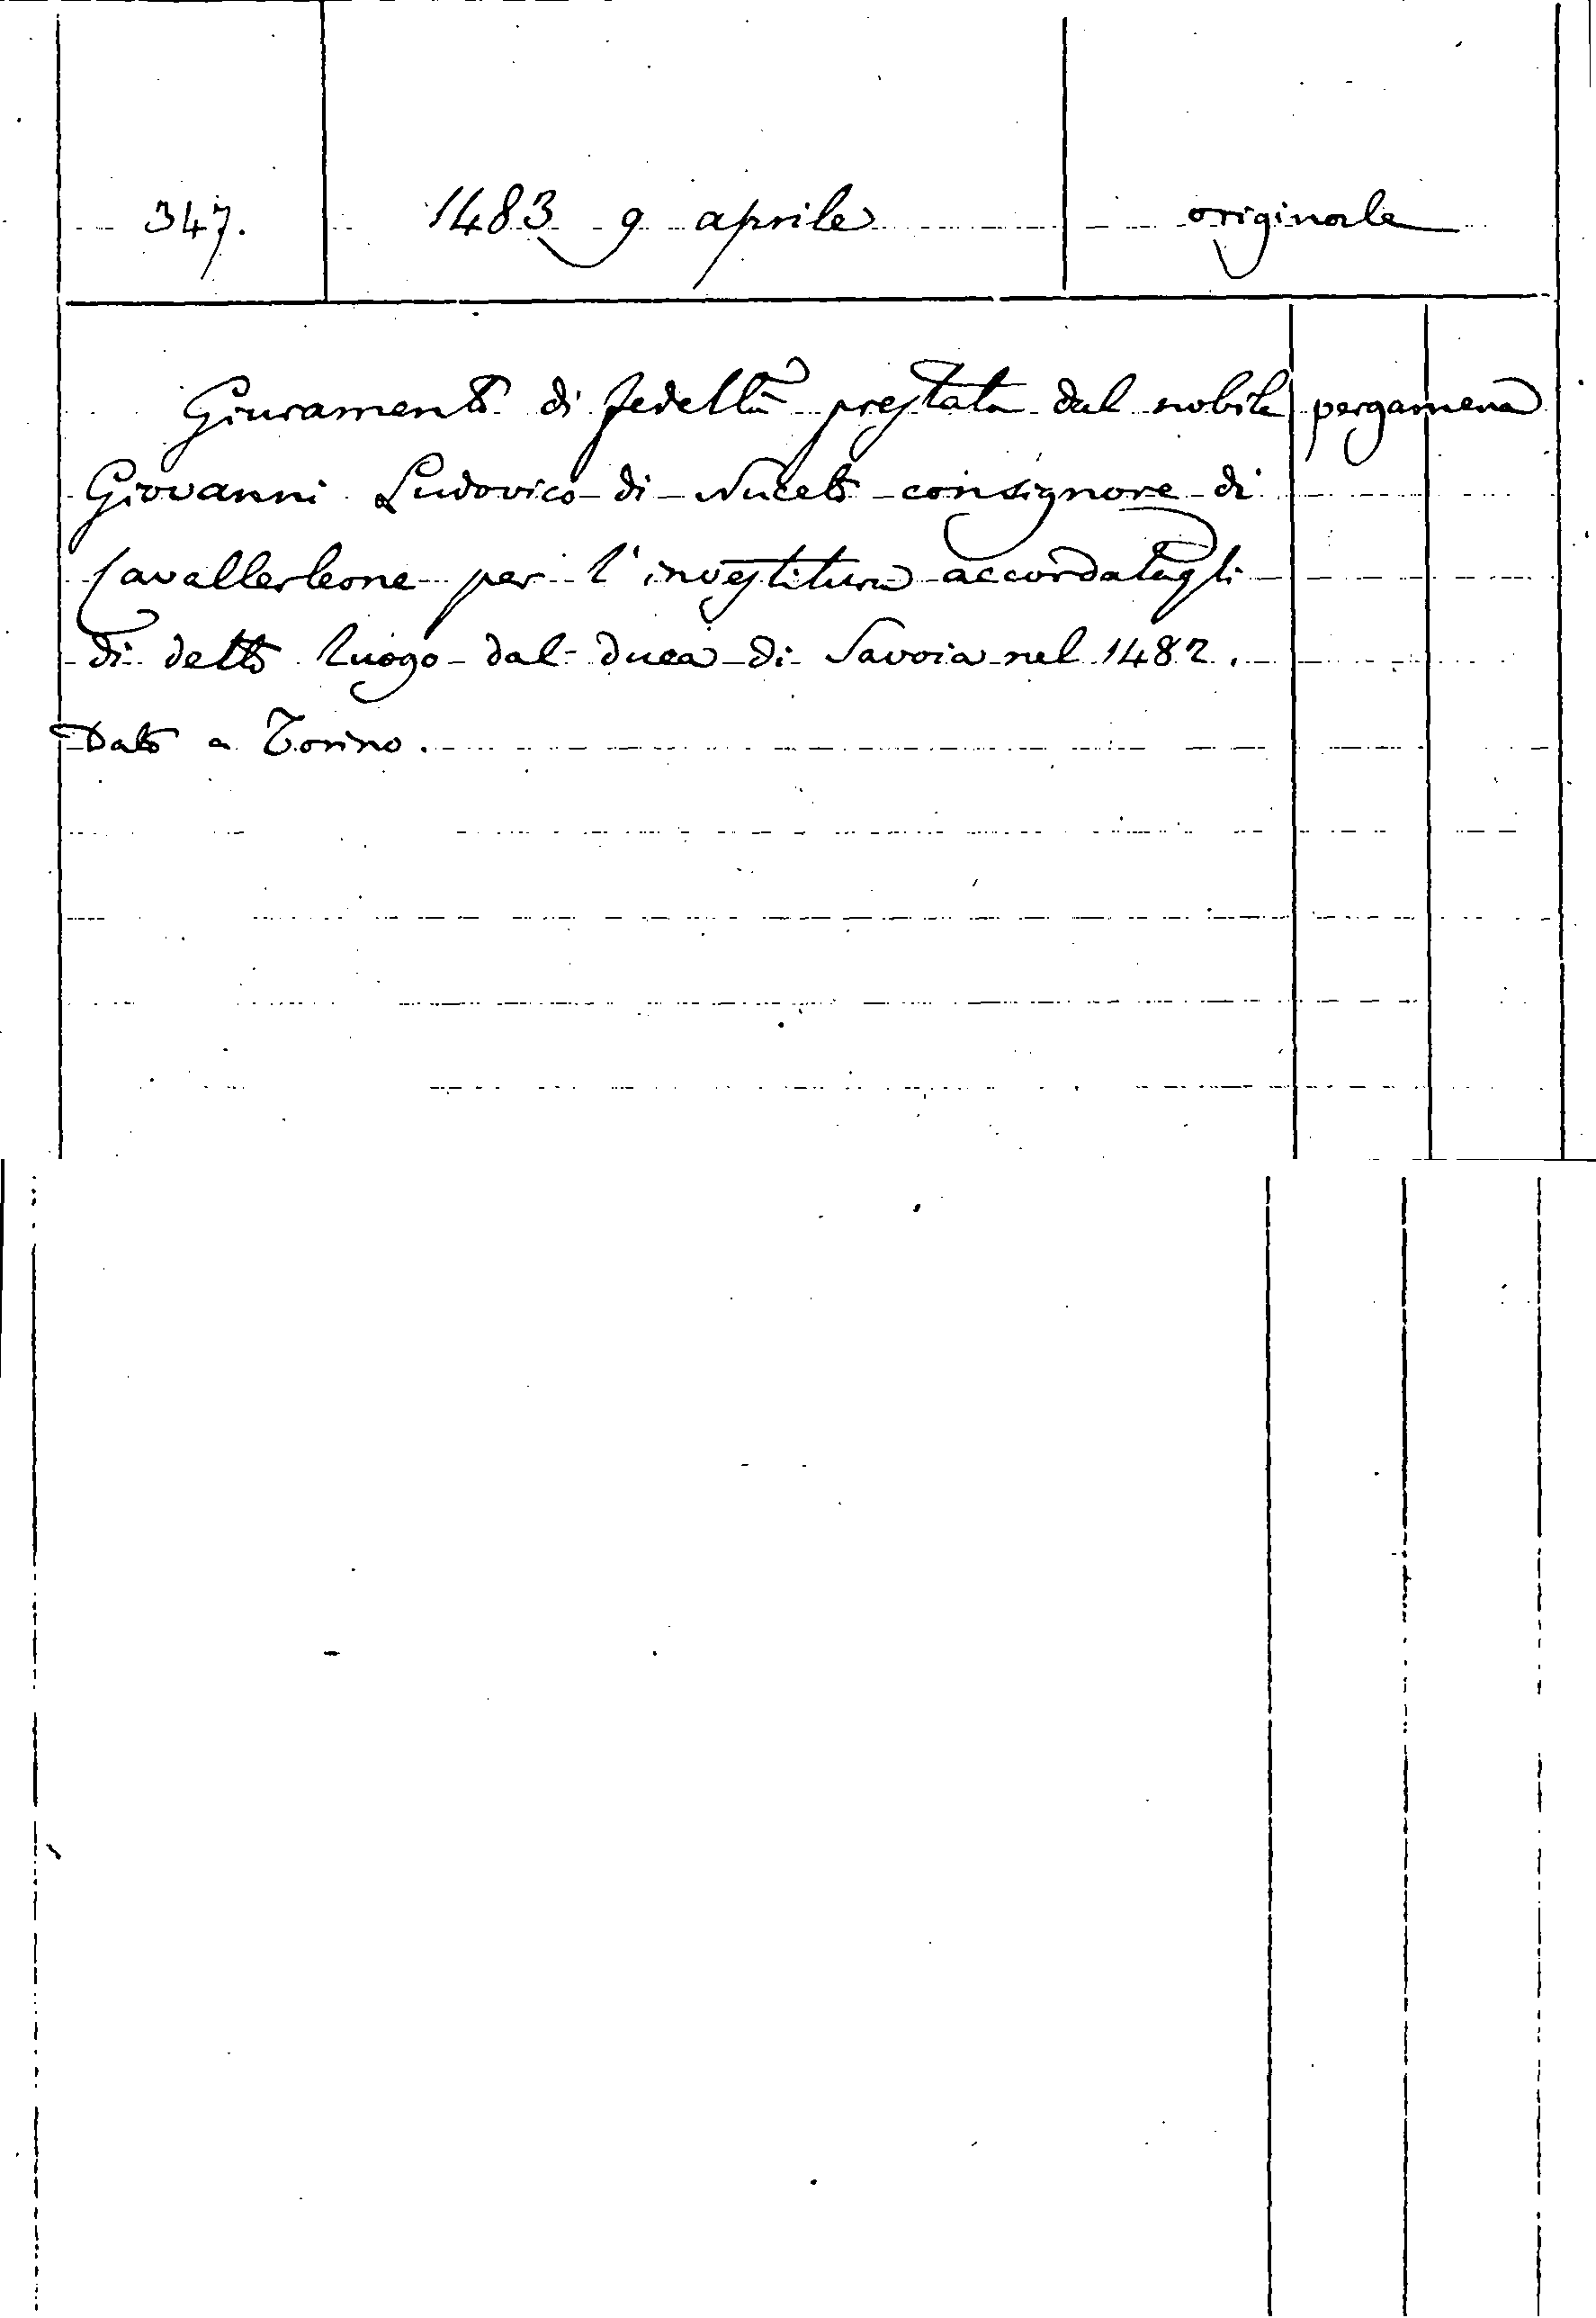 347. 1483 9 aprile originale
Giuramento di fedeltà prestata dal nobile pergamena
Giovanni Ludovico di Nuceto consignore di
Cavallerleone per l'investitura accordatagli
di detto luogo dal duca di Savoia nel 1482.
Dato a Torino.